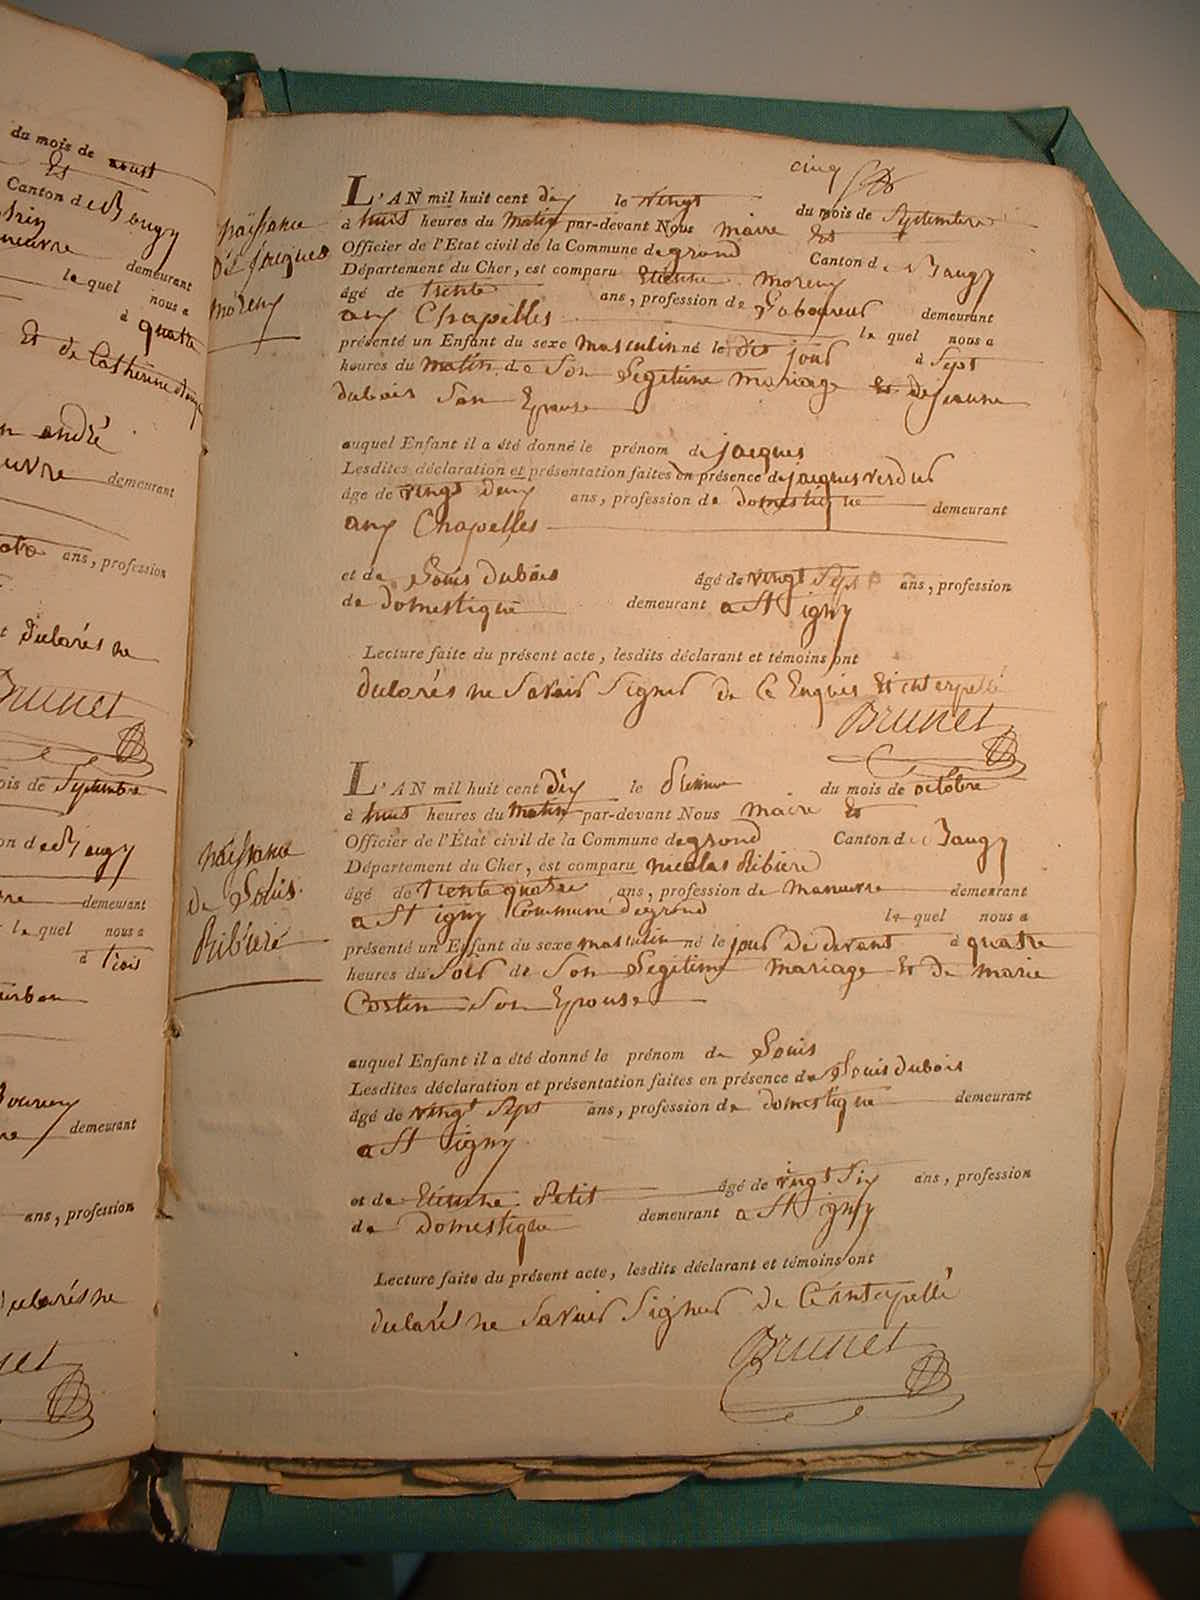 du mois de aoust
Et
Canton de Baugy
manœuvre demeurant
le quel nous a
à quatre
Et de Catherine
andré
demeurant
ans, profession
dularés ne
Brunet
mois de Septembre
Canton de Baugy
demeurant
le quel nous a
à trois
demeurant
ans, profession
dularés ne
cinq
L'AN mil huit cent dix le vingt du mois de Septembre
à huit heures du matin par-devant Nous maire Et
Officier de l'Etat civil de la Commune de grond Canton de Baugy
Département du Cher, est comparu Etienne moreux
âgé de trente ans, profession de Laboureur demeurant
aux Chapelles le quel nous a
présenté un Enfant du sexe masculin né le dit jour à Sept
heures du matin de Son Legitime mariage Et de jeanne
dubois Son Epouse
naissance
De Jacques
moreux
auquel Enfant il a été donné le prénom de jacques
Lesdites déclaration et présentation faites en présence de jacques verdur
âgé de vingt deux ans, profession de domestique demeurant
aux Chapelles
et de Louis dubois âgé de vingt Sept ans, profession
de domestique demeurant a St igny
Lecture faite du présent acte, lesdits déclarant et témoins ont
dularés ne Savoir Signer de Ce Enquis Et interpellé
Brunet
L'AN mil huit cent dix le du mois de octobre
à huit heures du matin par-devant Nous maire Et
Officier de l'État civil de la Commune de grond Canton de Baugy
Département du Cher, est comparu nicolas Ribiere
âgé de trente quatre ans, profession de manuvre demeurant
a St igny Commune de grond le quel nous a
présenté un Enfant du sexe masculin né le jour de devant à quatre
heures du Soir de Son Legitime mariage Et de marie
Costin Son Epouse
naissance
de Louis
Ribiere
auquel Enfant il a été donné le prénom de Louis
Lesdites déclaration et présentation faites en présence de Louis dubois
âgé de vingt Sept ans, profession de domestique demeurant
a St igny
et de Etienne Petit âgé de vingt Six ans, profession
de domestique demeurant a St igny
Lecture faite du présent acte, lesdits déclarant et témoins ont
dularés ne Savoir Signer de Ce interpellé
Brunet